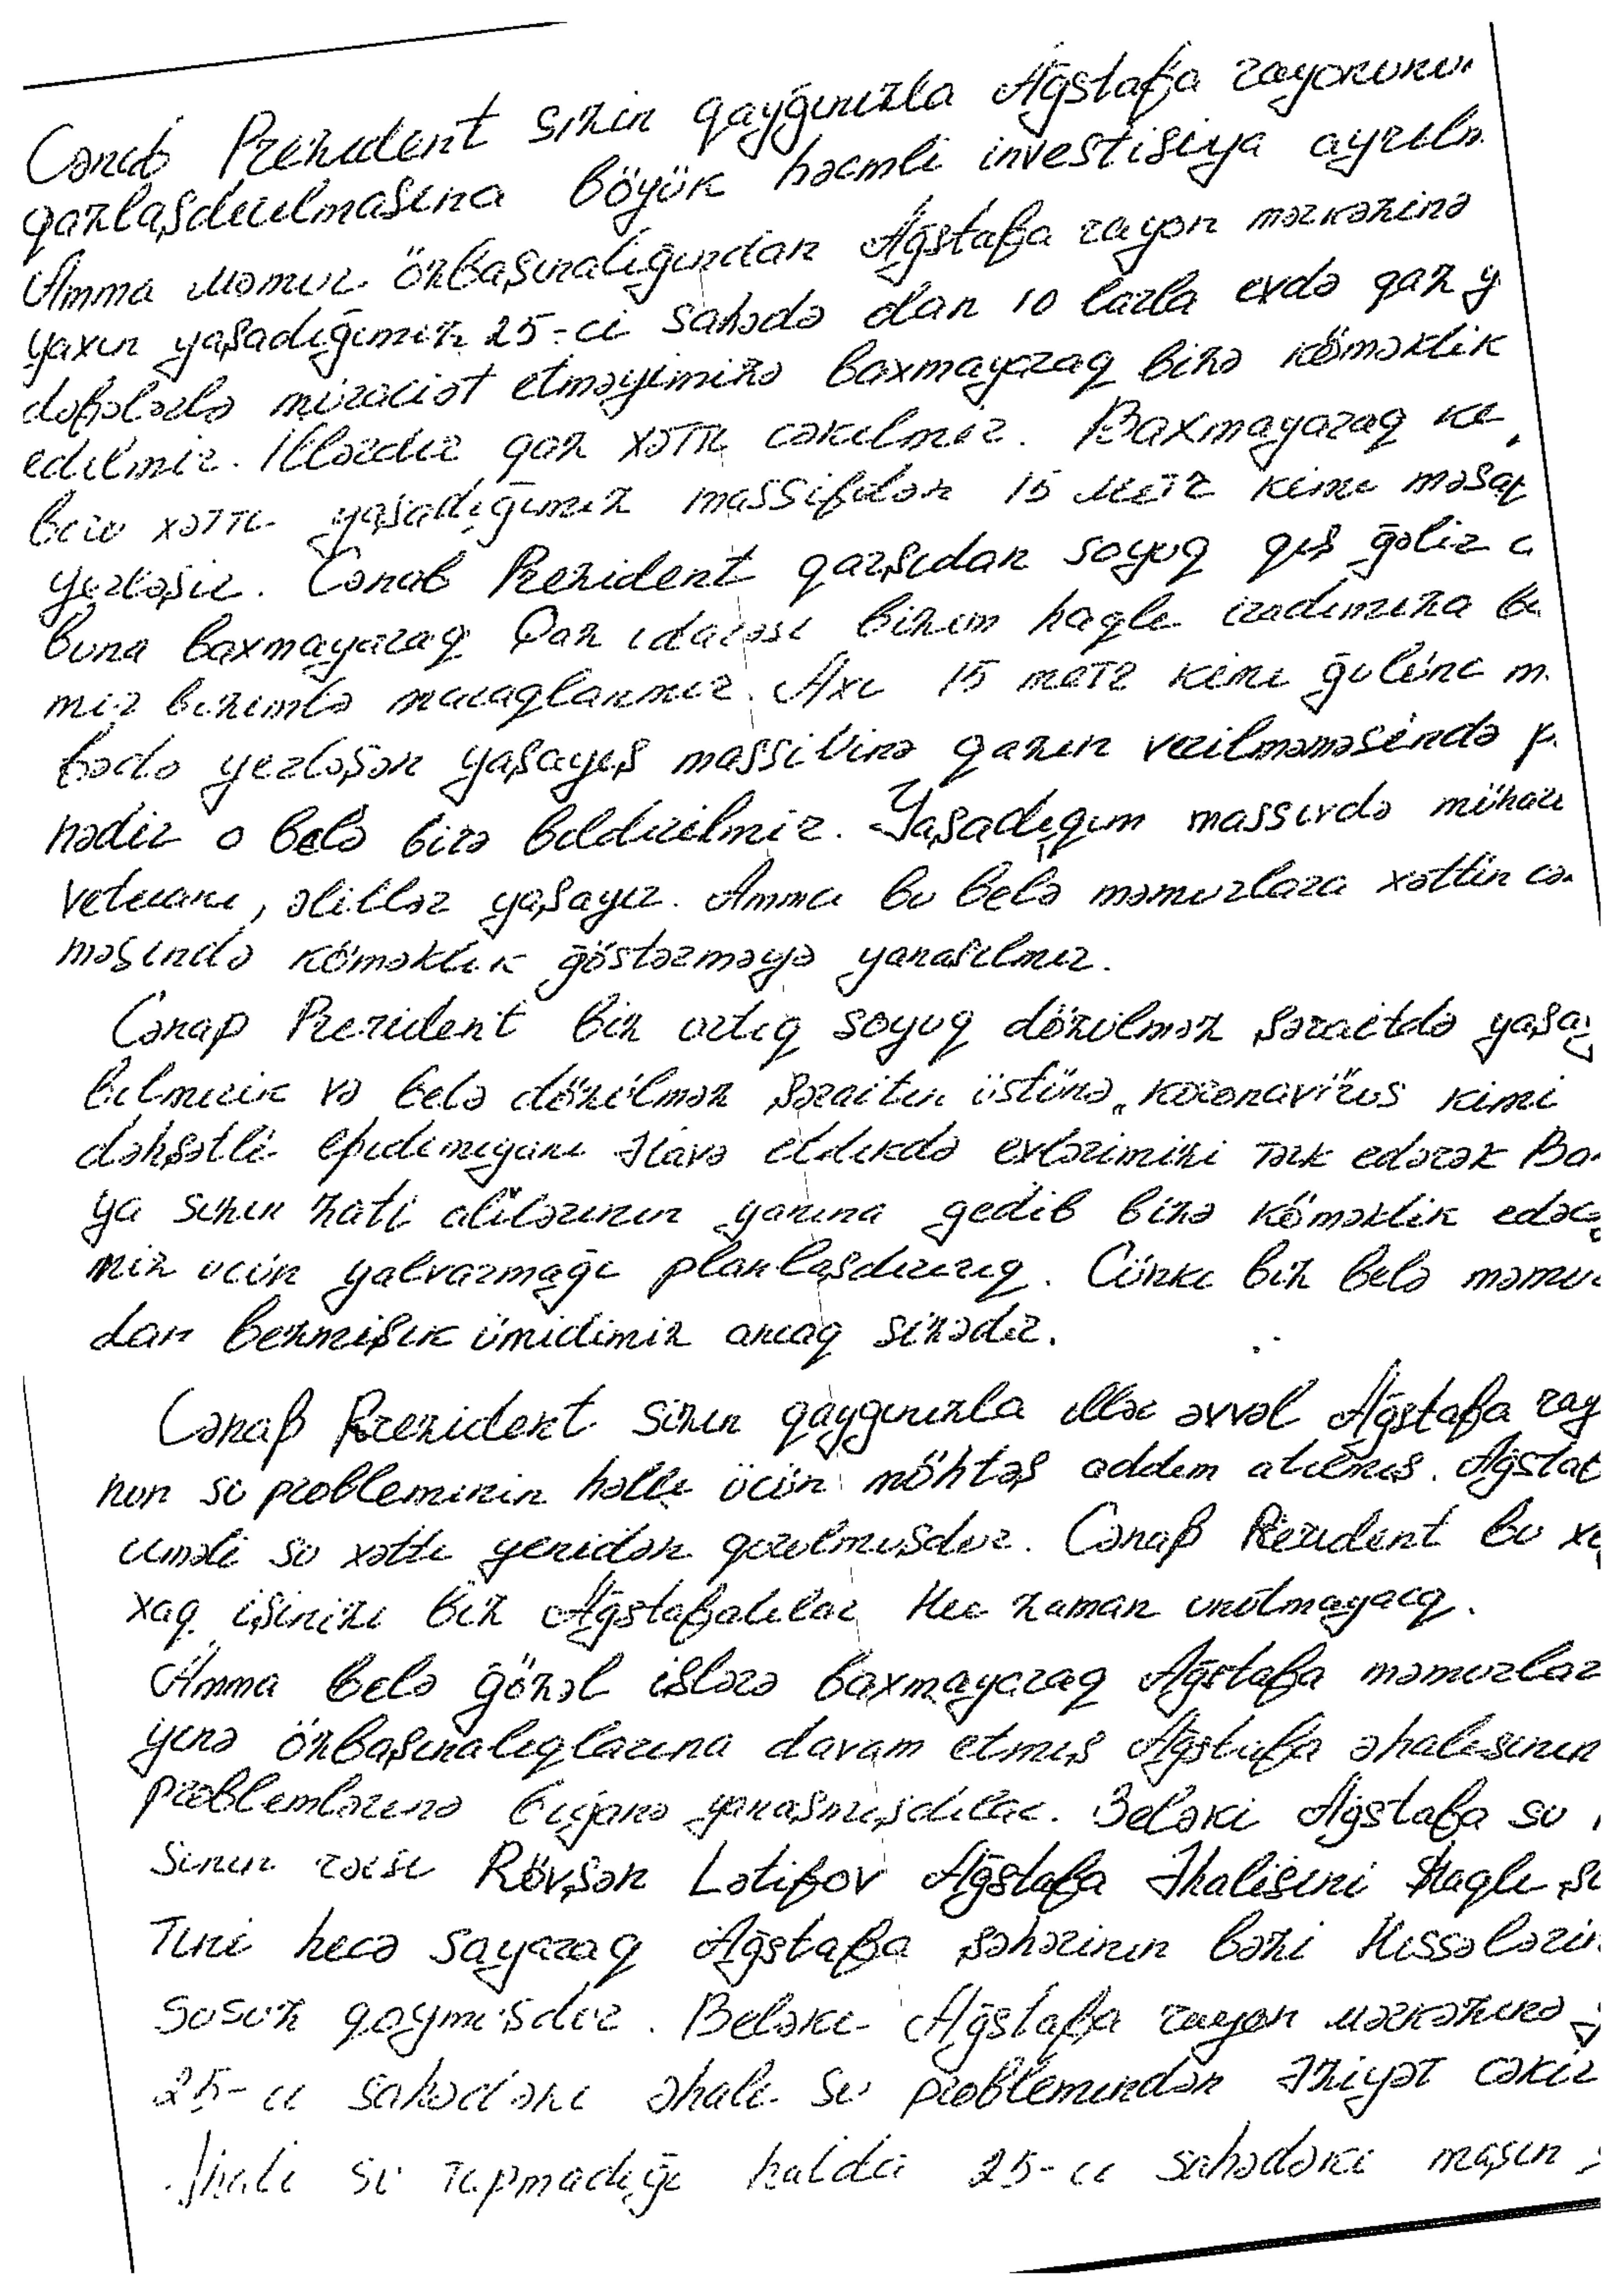 Cənab Prezident sizin qayğınızla Ağstafa rayonunun
qazlaşdırılmasına böyük həcmli investisiya ayrılm
Amma məmur özbaşınalığından Ağstafa rayon mərkəzinə
yaxın yaşadığımız 25-ci sahədə olan 10 larla evdə qaz y
dəfələrlə müraciət etməyimizə baxmayaraq bizə köməklik
edilmir. İllərdir qaz xətti cəkilmir. Baxmayaraq ki,
boru xətti yaşadığımız massifdən 15 metr kimi məsaf
yerləşir. Cənab Prezident qarşıdan soyuq qış ğəlir a
buna baxmayaraq Qaz idarəsi bizim haqlı iradımıza ba
mir bizimlə maraqlanmır. Axı 15 metr kimi ğülünc m.
fədə yerləşən yaşayış massivinə qazın verilməməsində p.
nədir o belə bizə bildirilmir. Yaşadığım massivdə mühari
veteranı, əlillər yaşayır. Amma bu belə məmurlara xəttin cə
məsində köməklik ğöstərməyə yanaşılmır.
Cənap Prezident biz artıq soyuq dözülməz şəraitdə yaşay
bilmirik və belə dözülməz şəraitin üstünə „koronavirus kimi
dəhşətli epidemiyanı əlavə etdikdə evlərimizi tərk edərək Ba
ya sizin zati alilərinin yanına gedib bizə köməklik edəcə
niz ücün yalvarmağı planlaşdırırıq. Cünki biz belə məmur
dan bezmişik ümidimiz ancaq sizədir.
Cənab Prezident sizin qayğınızla illər əvvəl Ağstafa ray
nun su probleminin həlli ücün möhtəş addım atılmış. Ağstaf
ümumi su xətti yenidən qurulmuşdur. Cənab Prezident bu xe
xaq işinizi biz Ağstafalılar Hec zaman unutmayacıq.
Amma belə ğözəl işlərə baxmayaraq Ağstafa məmurlar
yenə özbaşınalıqlarına davam etmış Ağstafa əhalisinin
problemlərinə biğanə yanaşmışdılar. Beləki Ağstafa su
sinin rəisi Rövşən Lətifov Ağstafa Əhalisini Haqlı şi
Tini hecə sayaraq Ağstafa şəhərinin bəzi Hissələrin
susuz qoymuşdur. Beləki Ağstafa rayon mərkəzinə y
25-ci sahədəki əhali su problemindən Əziyət cəkir
Əhali su tapmadığı halda 25-ci sahədəki maşın